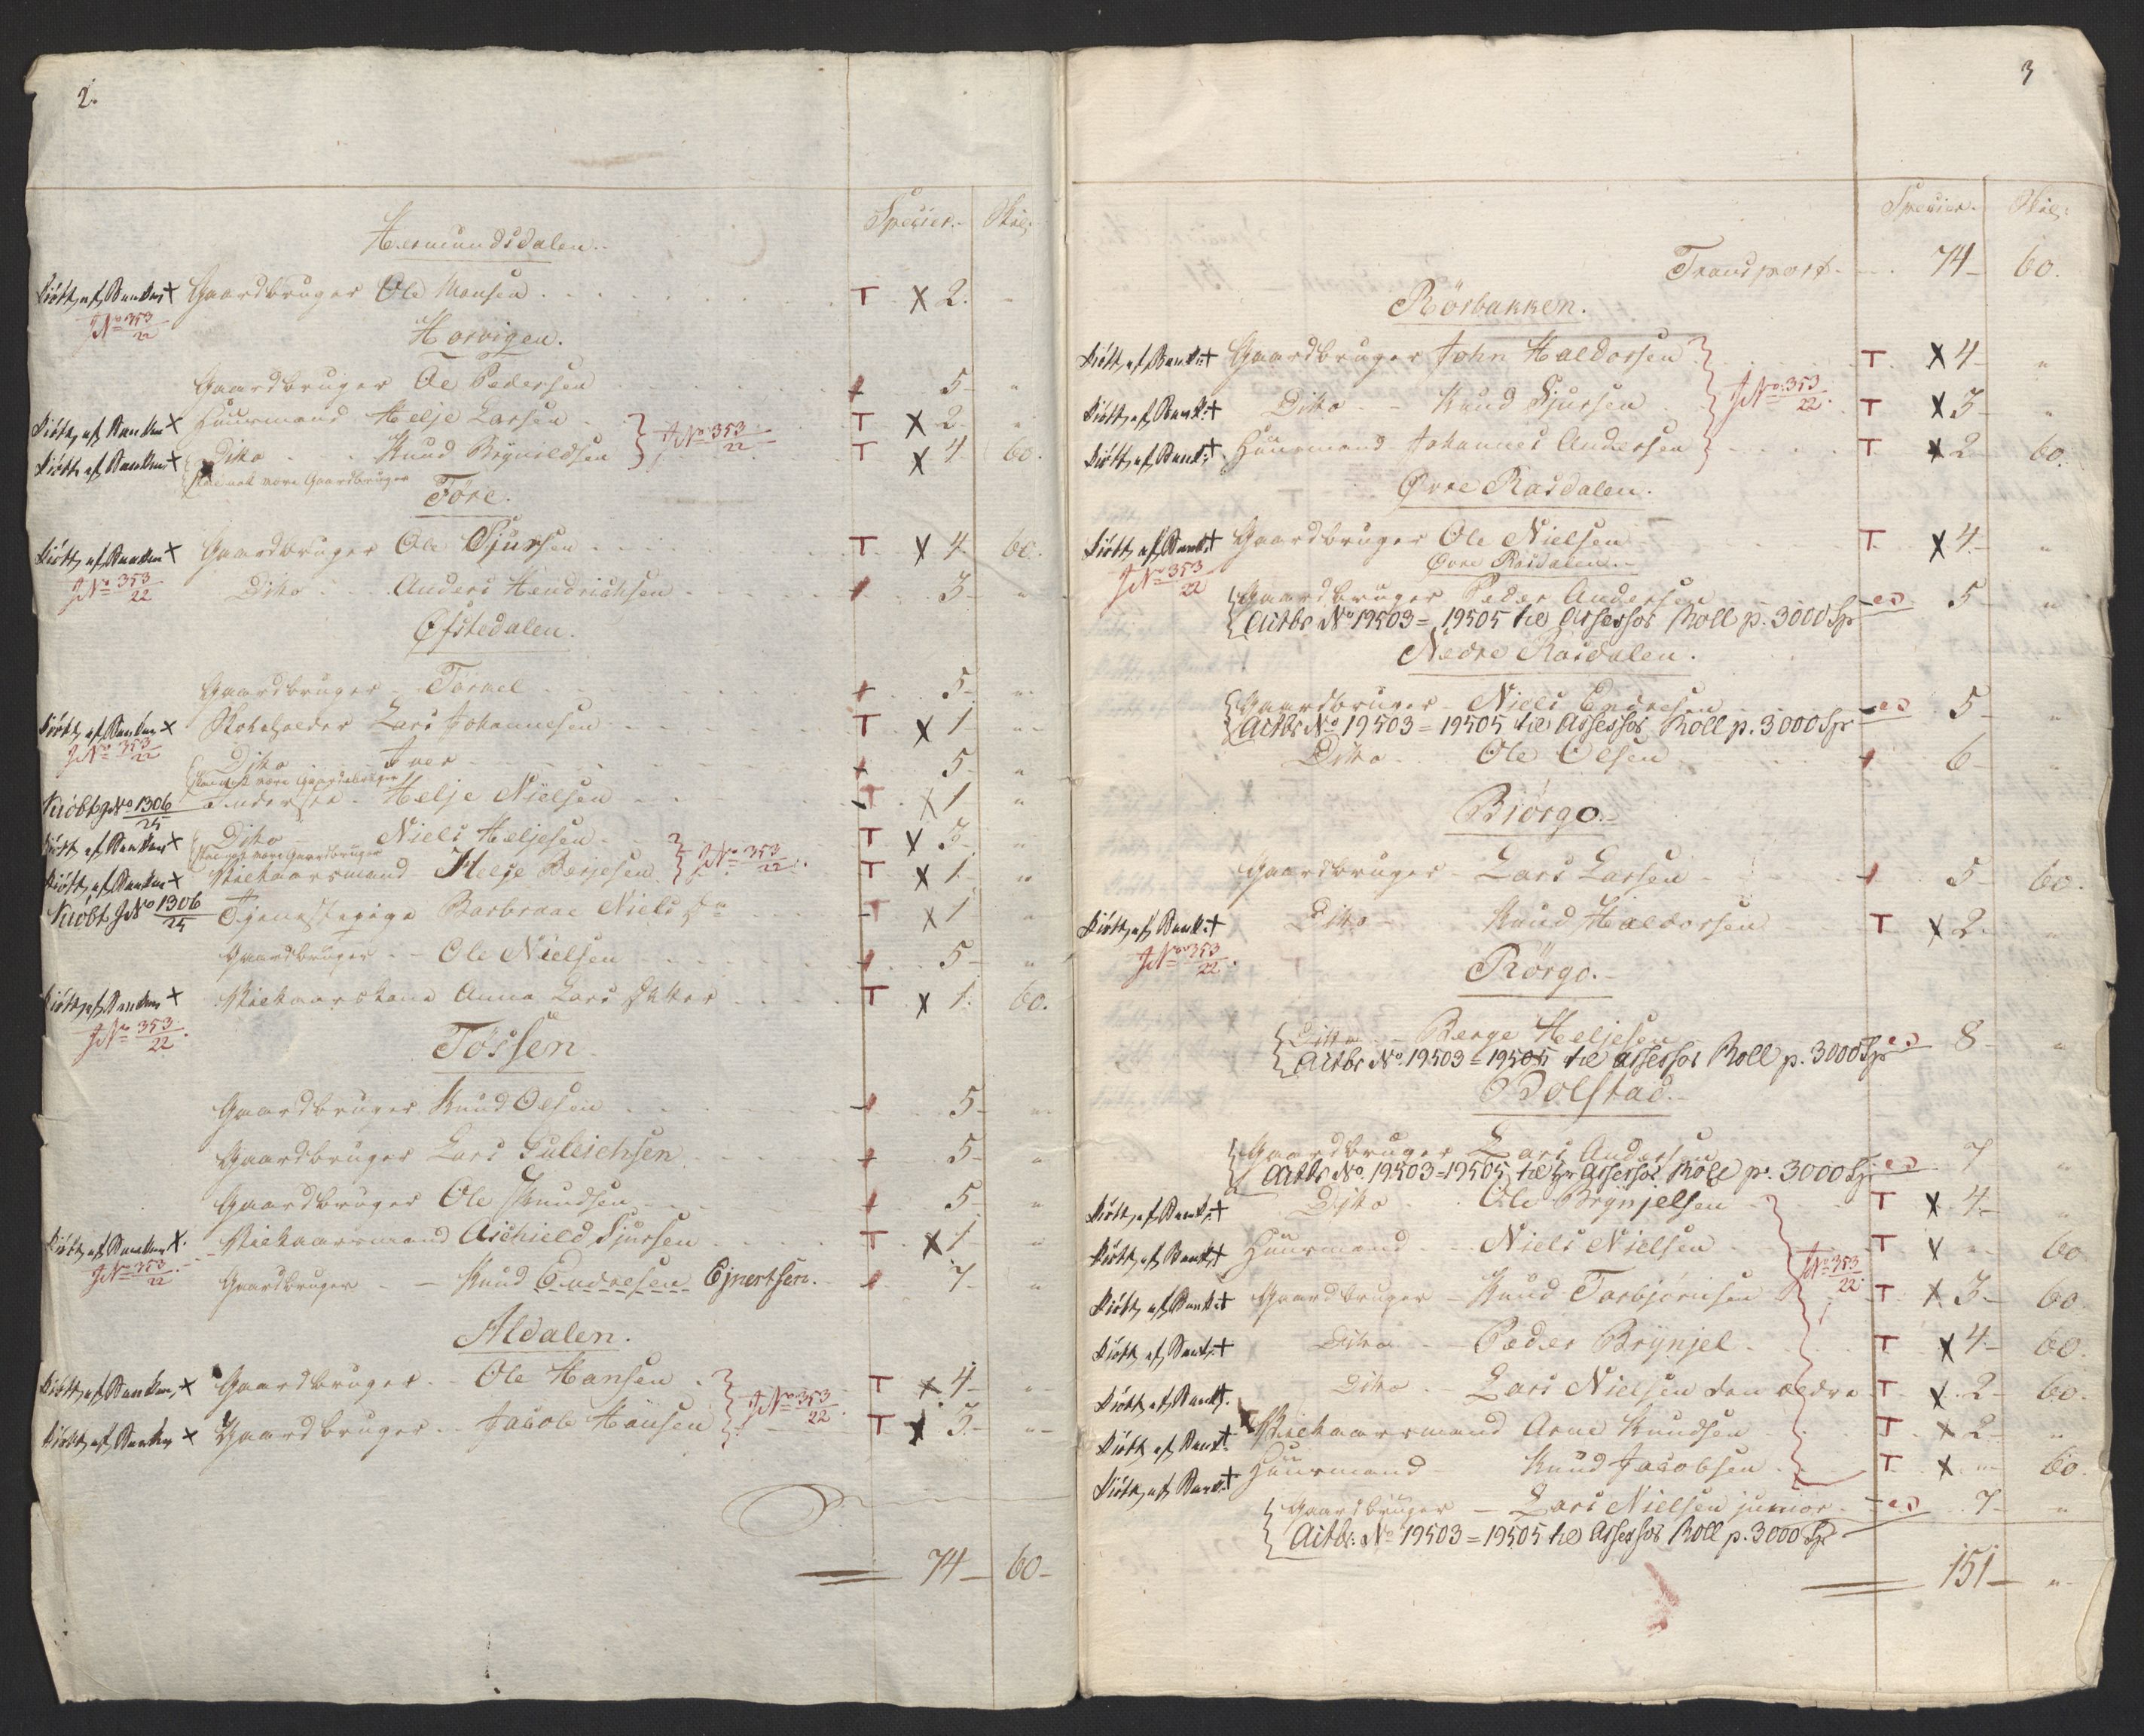 2.
Specier. Skil:
Hermundsdalen.
Kiöbt af Banken + Gaardbruger Ole Monsen T X 2. "
JNo 353/22
Horvigen.
Gaardbruger Ole Pedersen + 5 "
Kiöbt af Banken X Huusmand Helje Larsen T X 2 "
JNo 353/22
Kiöbt af Banken X Dito Knud Brynildsen T X 4 60.
skal nok være Gaardbruger
Töre.
Kiöbt af Banken X Gaardbruger Ole Sjursen T X 4 60.
JNo 353/22
Dito Anders Hendrichsen + 3 "
Öfstedalen.
Gaardbruger Tormel + 5 "
Kiöbt af Banken X Lars Johannesen T X 1 "
JNo 353/22
Dito Iver + 5 "
skal nok være Gaardbruger
Kiöbt JNo 1306/25 Inderste Helje Nielsen T X 1 "
Kiöbt af Banken X Dito Niels Heljesen T X 3 "
skal nok være Gaardbruger
JNo 353/22
Kiöbt af Banken X Vilkaarsmand Helje Berjesen T X 1 "
Kiöbt JNo 1306/25 Tjenestepige Barbraae Niels Dr T X 1 "
Gaardbruger Ole Nielsen + 5 "
Kiöbt af Banken X Vilkaarskone Anna Lars Datter T X 1. 60.
JNo 353/22
Tössen
Gaardbruger Knud Olsen + 5 "
Gaardbruger Lars Gulleichsen + 5 "
Gaardbruger Ole Knudsen + 5 "
Kiöbt af Banken X. Vilkaarsmand Aschield Sjursen T X 1 "
JNo 353/22
Gaardbruger Knud Endresen Ejnertsen. + 7 "
Aldalen.
Kiöbt af Banken X Gaardbruger Ole Hansen T X 4 "
JNo 353/22
Kiöbt af Banken X Gaardbruger Jacob Hansen T X 3 "
74 60

3
Specier. Skil:
Transport 74 60.
Rörbakken.
Kiöbt af Bank: + Gaardbruger John Haldorsen T X 4 "
JNo 353/22
Kiöbt af Bank: + Dito Knud Sjursen T X 3 "
Kiöbt af Bank: + Huusmand Johannes Andersen T X 2 60.
Øvre Rasdalen.
Kiöbt af Bank: + Gaardbruger Ole Nielsen T X 4 "
JNo 353/22
Øvre Rasdalen.
Gaardbruger Peder Andersen 5 "
Actbr No 19503 = 19505 til Assessor Roll p. 3000 Sp
Nedre Rasdalen.
Gaardbruger Niels Endresen 5 "
Actbr No 19503 = 19505 til Assessor Roll p. 3000 Sp
Dito Ole Olsen + 6 "
Biörgo.
Gaardbruger Lars Larsen + 5 60.
Kiöbt af Bank: + Dito Knud Haldorsen T X 2 "
JNo 353/22
Rörgo.
Ditto Berge Heljesen 8 "
Actbr No 19503 = 19505 til Assessor Roll p. 3000 Sp
Bolstad.
Gaardbruger Lars Andersen 7 "
Actbr No 19503 = 19505 til Hr Assessor Roll p. 3000 Sp
Kiöbt af Bank: + Dito Ole Brynjelsen T X 4 "
Kiöbt af Bank: + Huusmand Niels Nielsen T X " 60
JNo 353/22
Kiöbt af Bank: + Gaardbruger Knud Torbjörnsen T X 3 60.
Kiöbt af Bank: + Dito Peder Brynjel T X 4 60.
Kiöbt af Bank: Dito Lars Nielsen den ældre T X 2 60.
Kiöbt af Bank: + Vilkaarsmand Arne Knudsen T X 2 "
Kiöbt af Bank: + Huusmand Knud Jacobsen T X " 60.
Gaardbruger Lars Nielsen junior 7 "
Actbr: No 19503 = 19505 til Assessor Roll p. 3000 Sp
151 "